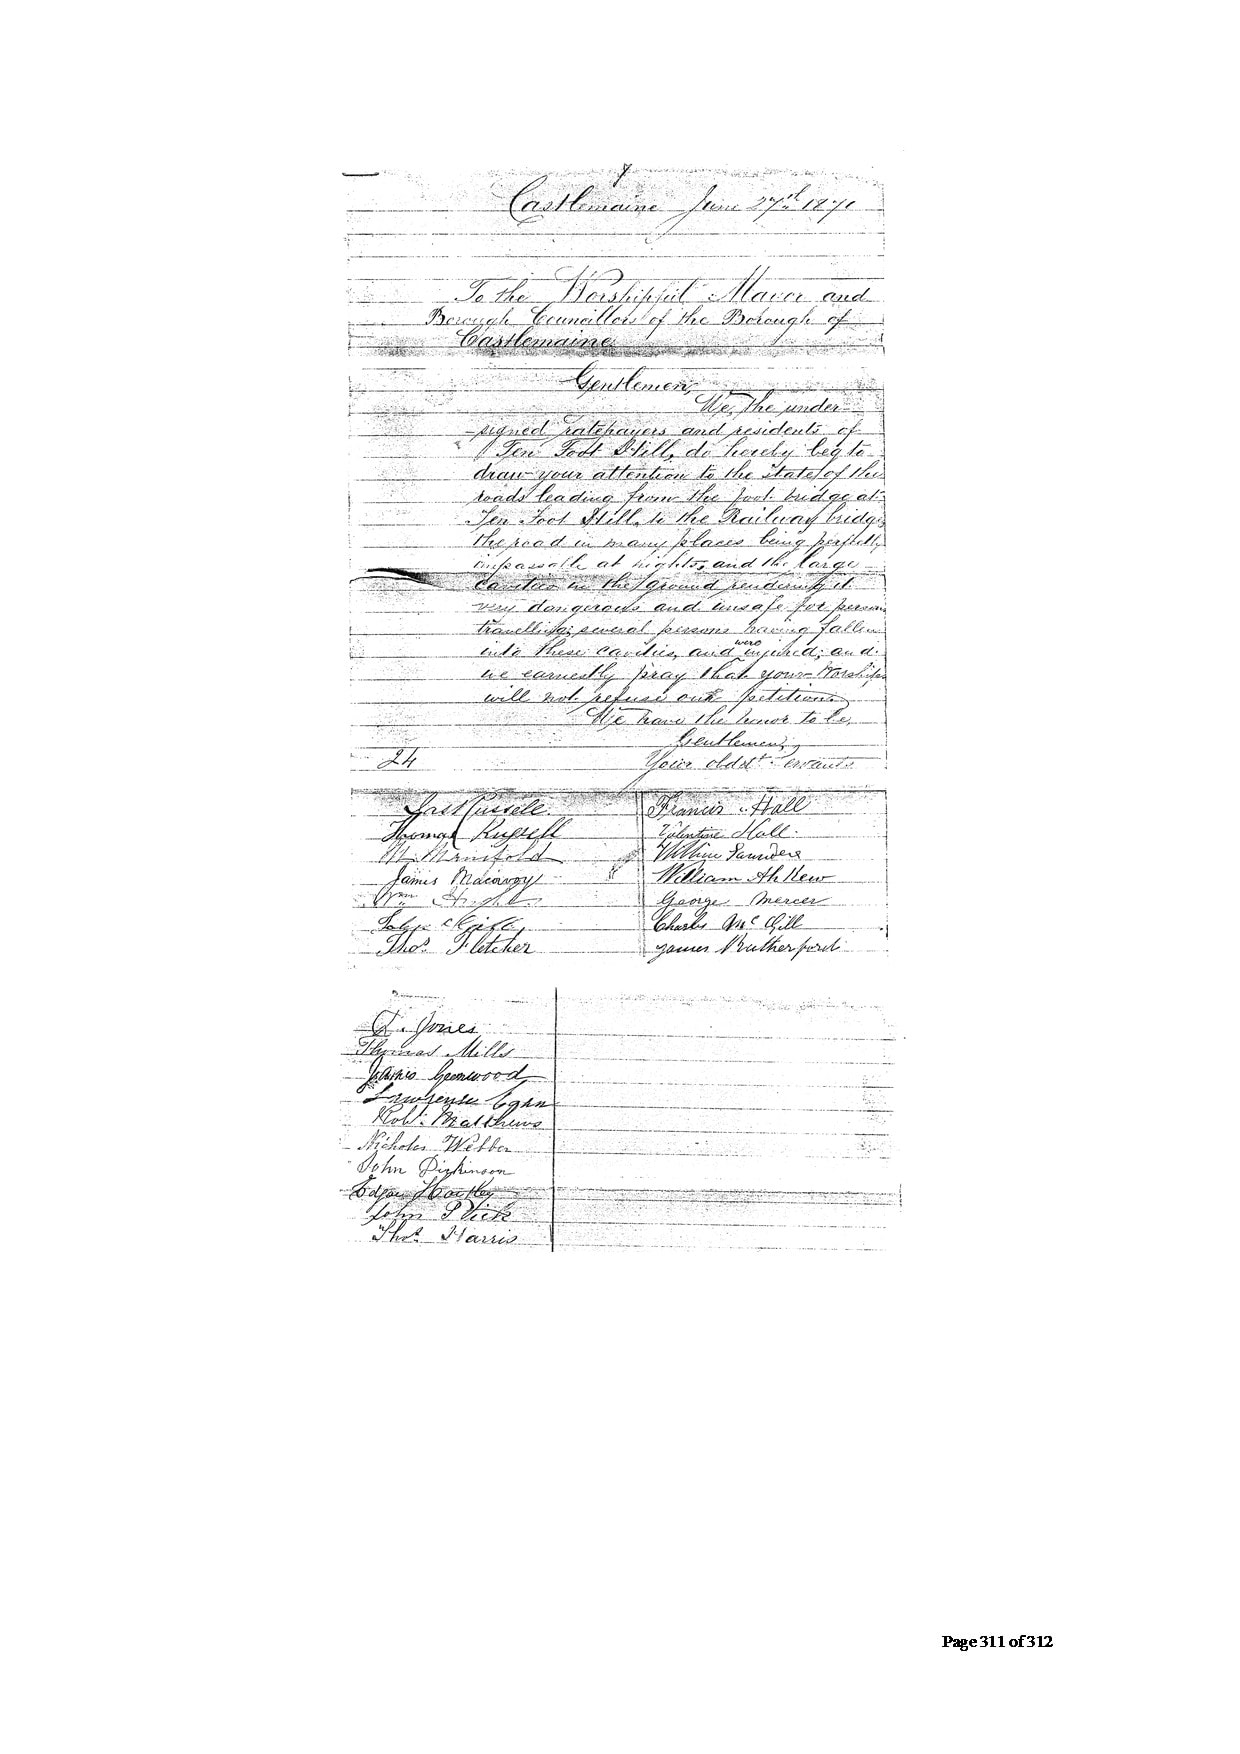 7
Castlemaine June 27th 1871
To the Worshipful Mayor and
Borough Councillors of the Borough of
Castlemaine
Gentlemen,
We, the under-
-signed ratepayers and residents of
Ten Foot Hill, do hereby beg to
draw your attention to the State of the
roads leading from the foot bridge at
Ten Foot Hill, to the Railway bridge,
the road in many places being perfectly
impassable at nights, and the large
cavities in the ground rendering it
very dangerous and unsafe for persons
travelling; several persons having fallen
into these cavities, and were injured; and
we earnestly pray that your Worships
will not refuse our petition
We have the honor to be,
Gentlemen,
24
Your obedt. servants
Jas Russell. Francis Hall
Thomas Russell Valentine Hall.
M. Manifold William Saunders
James Macavoy William Ah Kew
Wm Hughes George Mercer
Charles McGill
Thos. Fletcher James Rutherford
Jones
Thomas Mills
James Greenwood
Lawrense Egan
Robt. Matthews
Nicholas Webber
John Dickinson
Edgar Hartley
John
Thos. Harris
Page 311 of 312